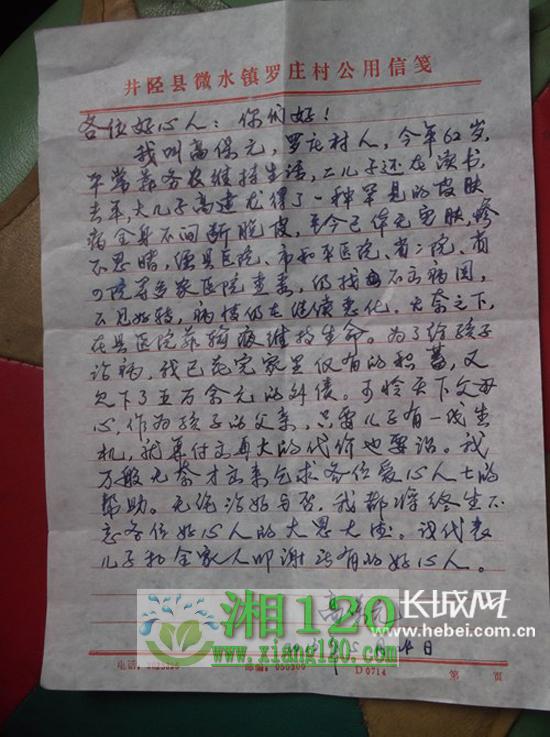 井陉县微水镇罗庄村公用信笺
各位好心人：你们好！
我叫高保元，罗庄村人，今年62岁，
平常靠务农维持生活，二儿子还在读书，
去年，大儿子高建龙得了一种罕见的皮肤
病全身不间断脱皮，至今已体无完肤，惨
不忍睹，经县医院、市和平医院、省二院、省
四院等多家医院查看，仍找不出病因，
不见好转，病情仍在继续恶化。无奈之下，
在县医院靠输液维持生命。为了给孩子
治病，我已花完家里仅有的积蓄，又
欠下了五万余元的外债。可怜天下父母
心，作为孩子的父亲，只要儿子有一线生
机，就算付出再大的代价也要治。我
万般无奈才出来乞求各位爱心人士的
帮助。无论治好与否，我都将终生不
忘各位好心人的大恩大德。我代表
儿子和全家人叩谢所有的好心人。
高保元
月 日
电话： 邮编：050300 D0714 第 页
湘120
www.xiang120.com
长城网
www.hebei.com.cn